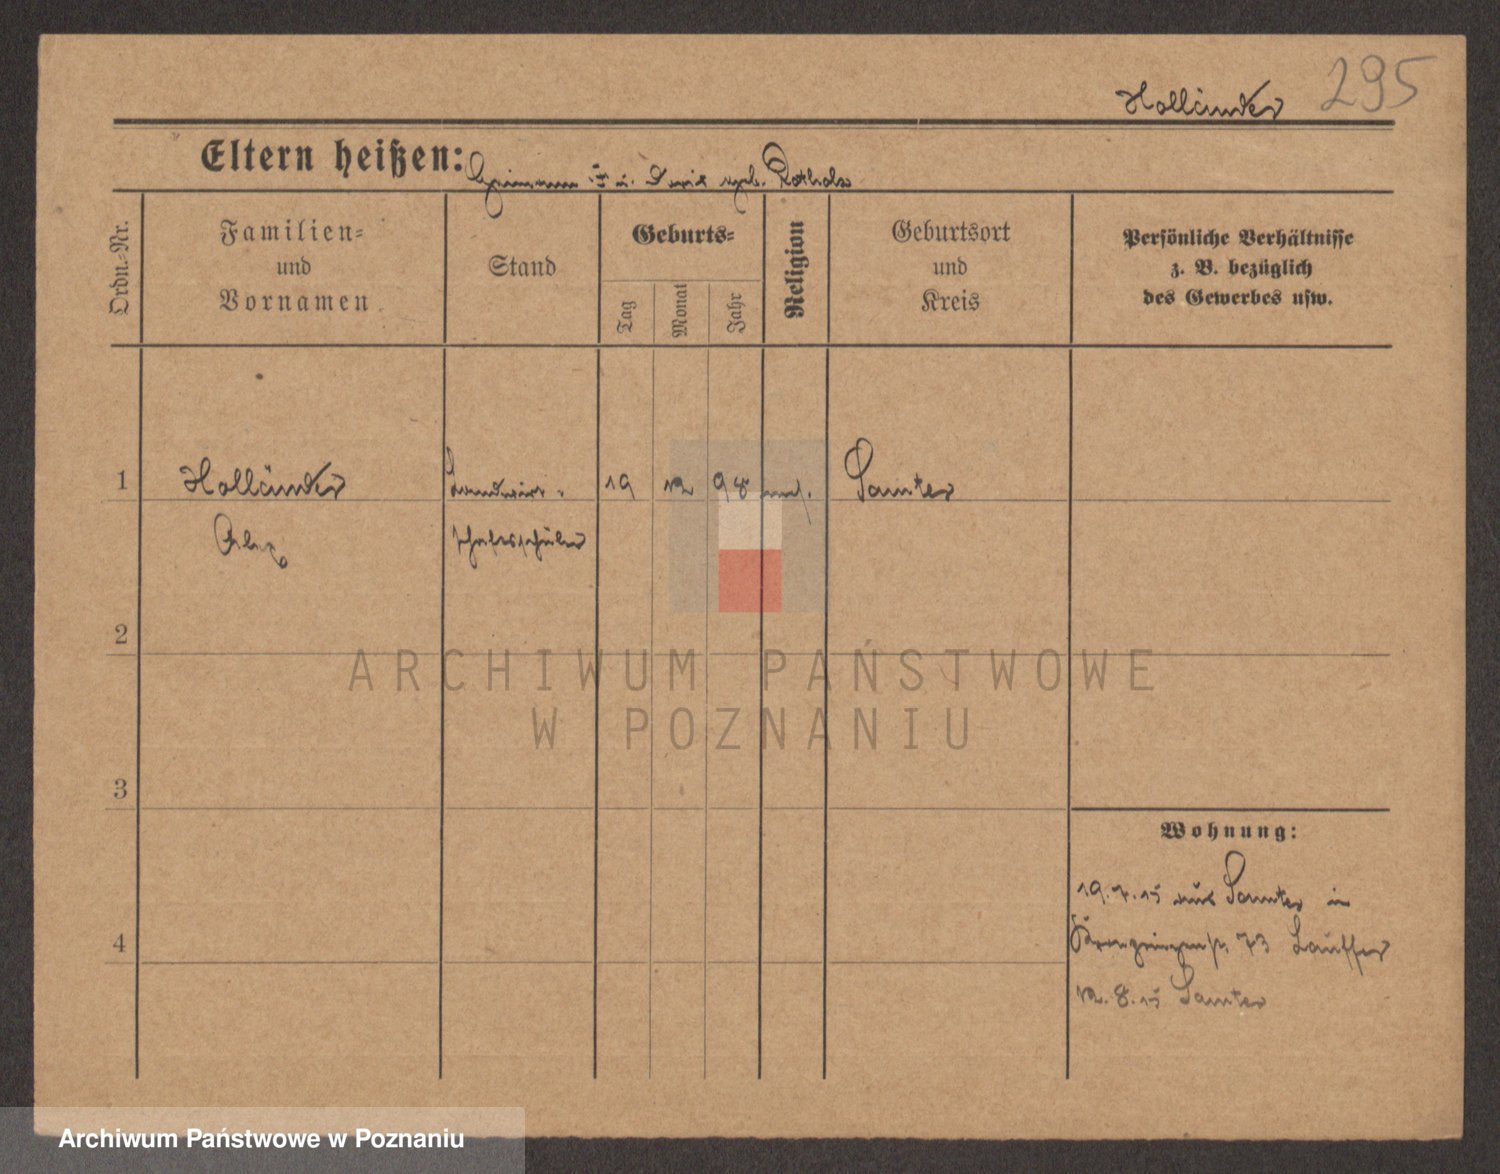 295
Holländer
Eltern heißen: u. geb. Rotholz
Ordn.-Nr.
Familien-
und
Vornamen
Stand
Geburts-
Tag
Monat
Jahr
Religion
Geburtsort
und
Kreis
Persönliche Verhältnisse
z. B. bezüglich
des Gewerbes usw.
1 Holländer Landwirt- 19 12 98 mos. Samter
Alex schaftsschüler
2
ARCHIWUM PAŃSTWOWE
W POZNANIU
3
Wohnung:
19.7.15 aus Samter in
4
73 Lauffer
12.8.15 Samter
Archiwum Państwowe w Poznaniu